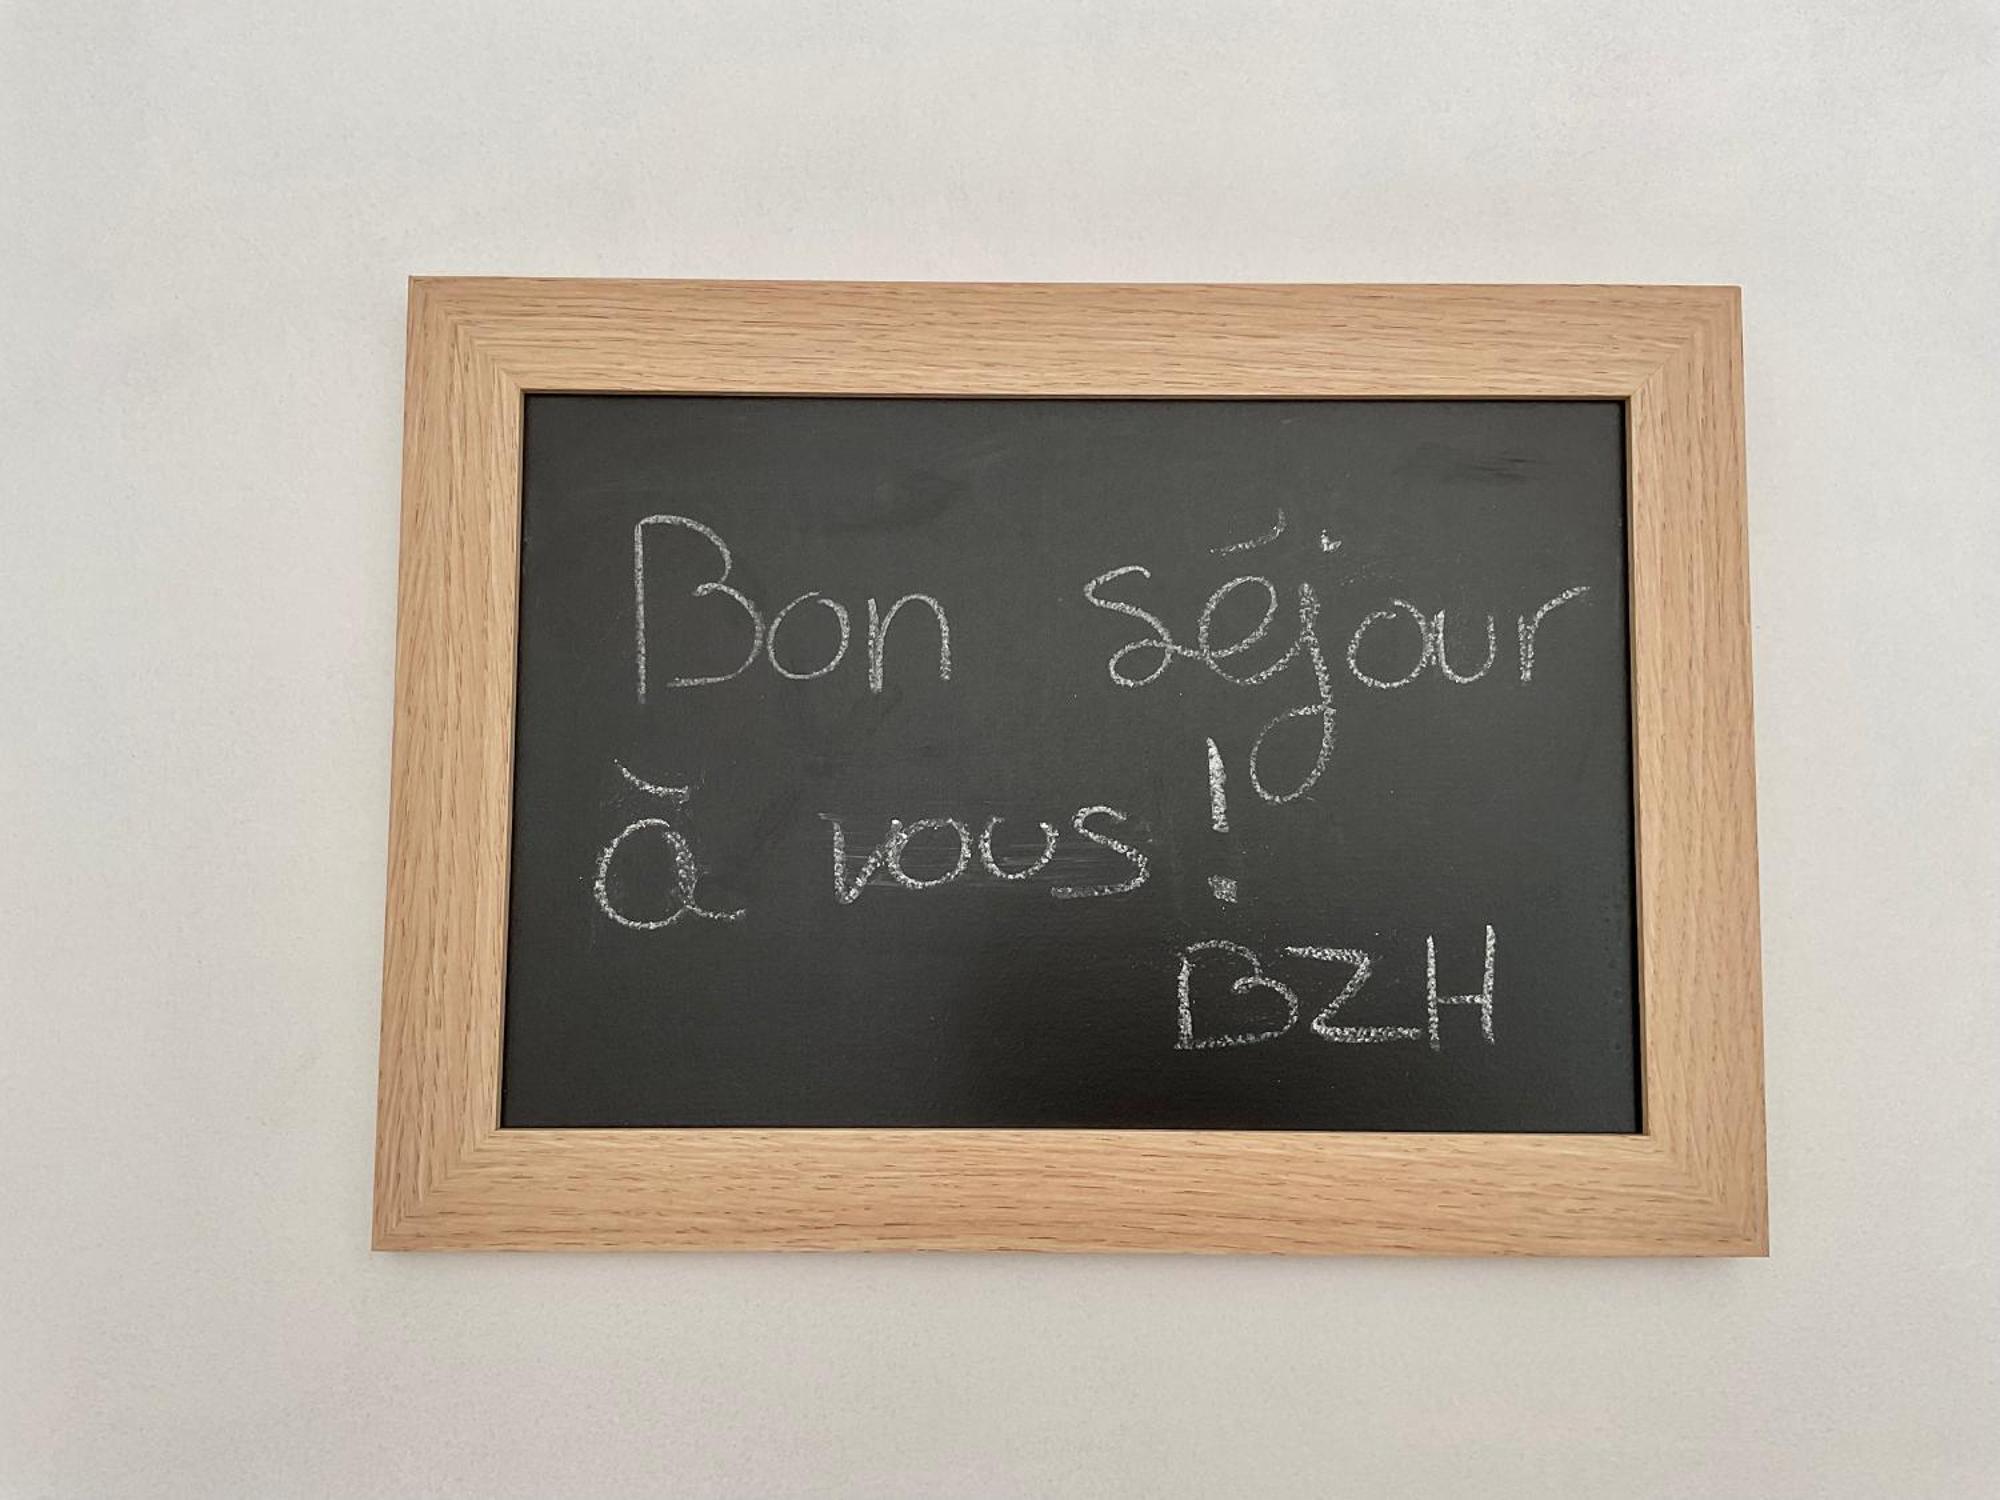 Bon séjour
à vous !
BZH